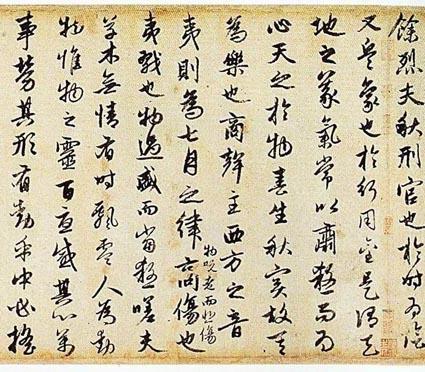 餘烈夫秋刑官也於時為陰
又兵象也於行用金是謂天
地之義氣常以肅殺而為
心天之於物春生秋實故其
為樂也商聲主西方之音
夷則為七月之律商傷也
物既老而悲傷
夷戮也物過盛而當殺嗟夫
草木無情有時飄零人為動
物惟物之靈百憂感其心萬
事勞其形有動乎中必搖